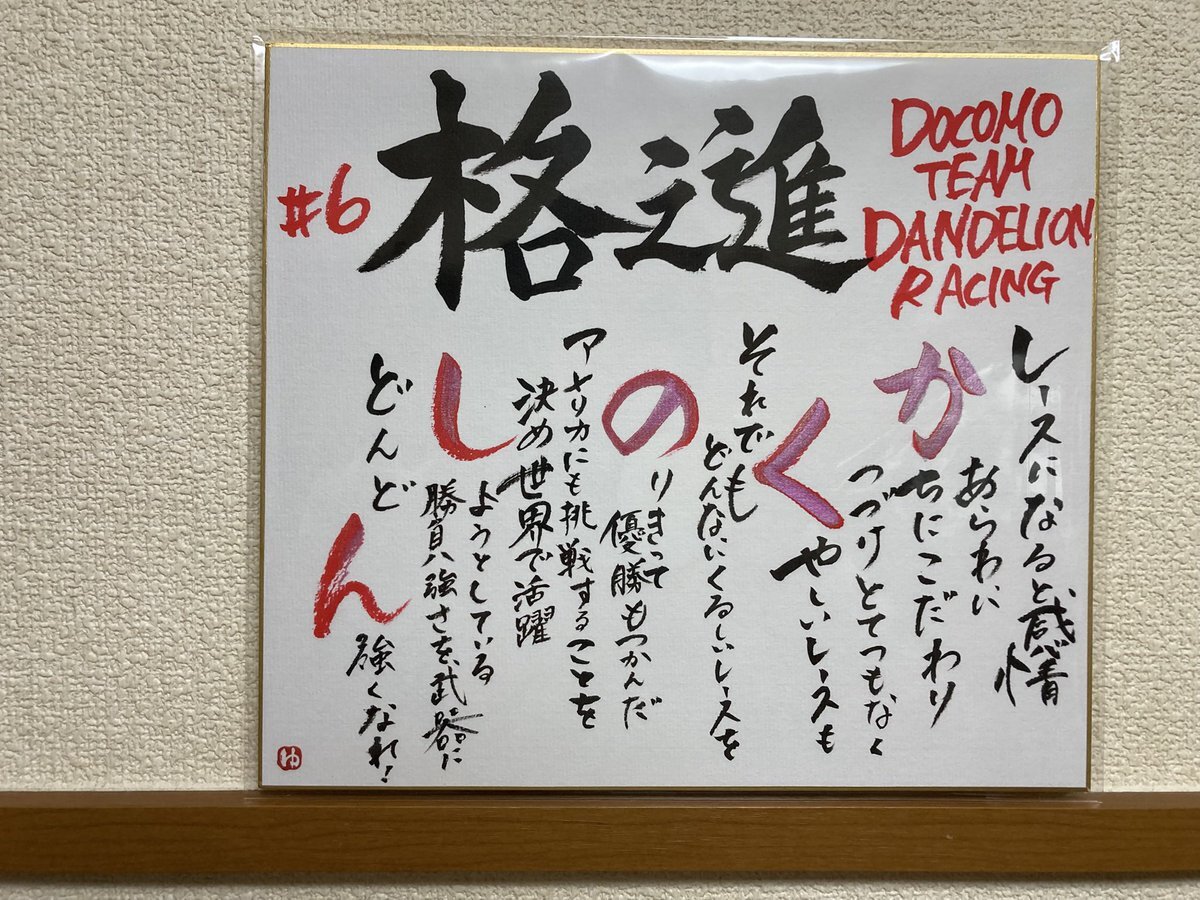 #6
格之進
DOCOMO
TEAM
DANDELION
RACING
レースになると感情
あらわに
かちにこだわり
つづけとてつもなく
くやしいレースも
それでも
どんなにくるしいレースを
のりきって
優勝もつかんだ
アメリカにも挑戦することを
決め世界で活躍
しようとしている
勝負強さを武器に
どんど
ん強くなれ!
ゆ